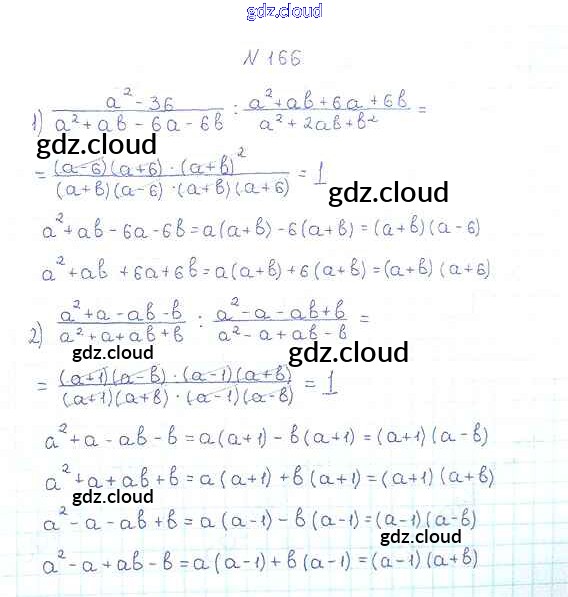 gdz.cloud
N 166
1) (a² - 36)/(a² + ab - 6a - 6b) : (a² + ab + 6a + 6b)/(a² + 2ab + b²) =
gdz.cloud
= ((a-6)(a+6) · (a+b)²)/((a+b)(a-6) · (a+b)(a+6)) = 1
gdz.cloud
a² + ab - 6a - 6b = a(a+b) - 6(a+b) = (a+b)(a-6)
a² + ab + 6a + 6b = a(a+b) + 6(a+b) = (a+b)(a+6)
2) (a² + a - ab - b)/(a² + a + ab + b) : (a² - a - ab + b)/(a² - a + ab - b) =
gdz.cloud gdz.cloud
= ((a+1)(a-b) · (a-1)(a+b))/((a+1)(a+b) · (a-1)(a-b)) = 1
a² + a - ab - b = a(a+1) - b(a+1) = (a+1)(a-b)
a² + a + ab + b = a(a+1) + b(a+1) = (a+1)(a+b)
gdz.cloud
a² - a - ab + b = a(a-1) - b(a-1) = (a-1)(a-b)
gdz.cloud
a² - a + ab - b = a(a-1) + b(a-1) = (a-1)(a+b)